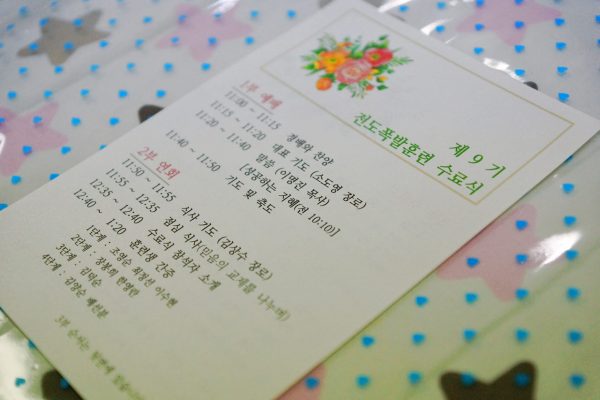 제 9 기
전도폭발훈련 수료식
1부 예배
11:00 ~ 11:15 경배와 찬양
11:15 ~ 11:20 대표 기도 (소도영 장로)
11:20 ~ 11:40 말씀 (이명진 목사)
[성공하는 지혜(전 10:10)]
11:40 ~ 11:50 기도 및 축도
2부 연회
11:50 ~ 11:55 식사 기도 (김상수 장로)
11:55 ~ 12:35 점심 식사(믿음의 교제를 나누며)
12:35 ~ 12:40 수료식 참석자 소개
12:40 ~ 1:20 훈련생 간증
1단계 : 조영순 최정선 이수현
2단계 : 장봉희 한영란
3단계 : 김덕순
4단계 : 김양순 예선분
3부 순서는 뒷면에 있습니다